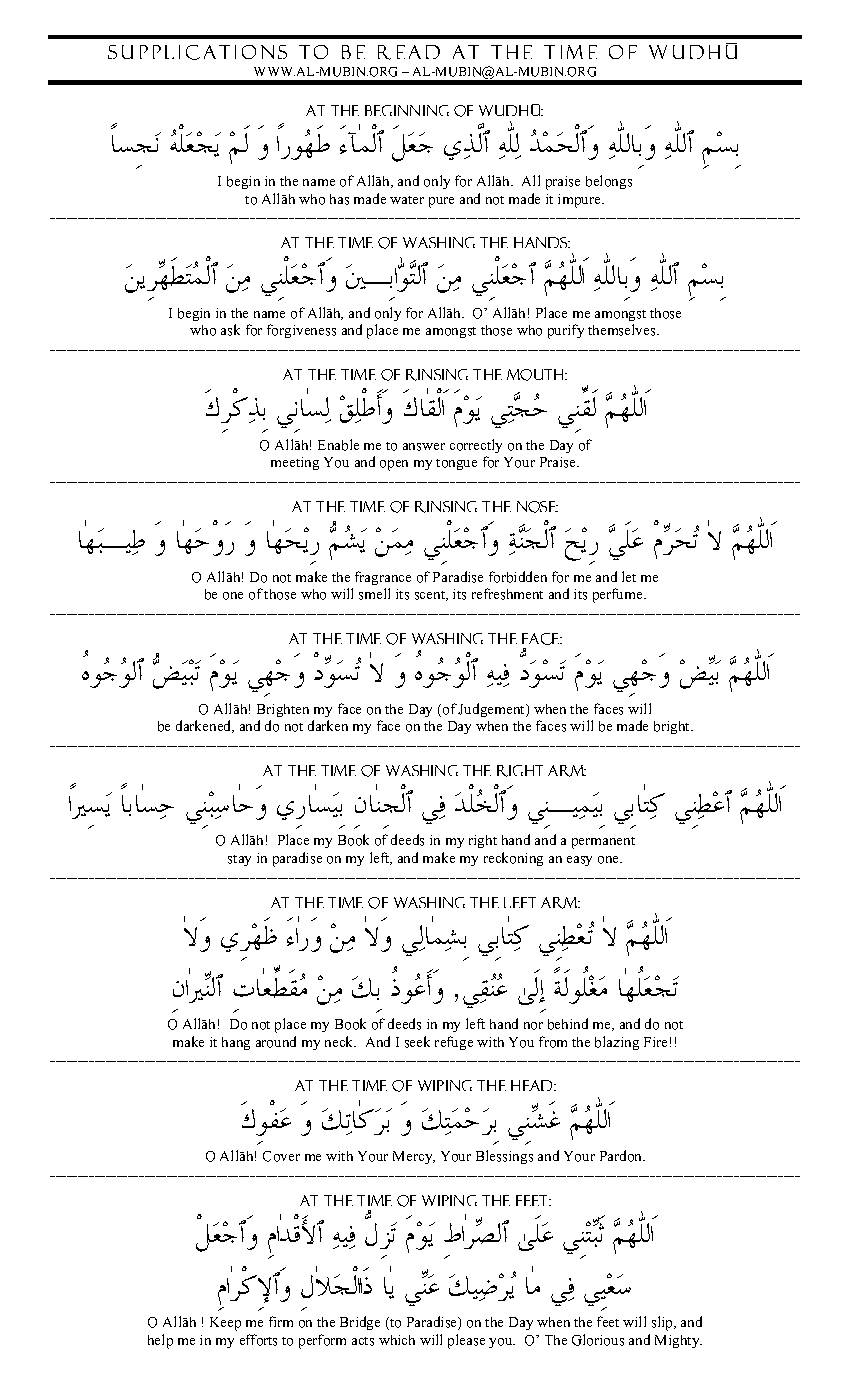 SUPPLICATIONS TO BE READ AT THE TIME OF WUDHŪ
WWW.AL-MUBIN.ORG – AL-MUBIN@AL-MUBIN.ORG
AT THE BEGINNING OF WUDHŪ:
بِسْمِ ٱللّٰهِ وَبِاللّٰهِ وَٱلْحَمْدُ لِلّٰهِ ٱلَّذِي جَعَلَ ٱلْمٰٓاءَ طَهُوراً وَ لَمْ يَجْعَلْهُ نَجِساً
I begin in the name of Allāh, and only for Allāh. All praise belongs
to Allāh who has made water pure and not made it impure.
AT THE TIME OF WASHING THE HANDS:
بِسْمِ ٱللّٰهِ وَبِاللّٰهِ اَللّٰهُمَّ ٱجْعَلْنِي مِنَ ٱلتَّوَّابِـــينَ وَٱجْعَلْنِي مِنَ ٱلْمُتَطَهِّرِينَ
I begin in the name of Allāh, and only for Allāh. O’ Allāh! Place me amongst those
who ask for forgiveness and place me amongst those who purify themselves.
AT THE TIME OF RINSING THE MOUTH:
اَللّٰهُمَّ لَقِّنِي حُجَّتِي يَوْمَ اَلْقٰاكَ وَأَطْلِقْ لِسٰانِي بِذِكْرِكَ
O Allāh! Enable me to answer correctly on the Day of
meeting You and open my tongue for Your Praise.
AT THE TIME OF RINSING THE NOSE:
اَللّٰهُمَّ لاٰ تُحَرِّمْ عَلَيَّ رِيْحَ ٱلْجَنَّةِ وَٱجْعَلْنِي مِمَنْ يَشُمُّ رِيْحَهٰا وَ رَوْحَهٰا وَ طِيـــبَهٰا
O Allāh! Do not make the fragrance of Paradise forbidden for me and let me
be one of those who will smell its scent, its refreshment and its perfume.
AT THE TIME OF WASHING THE FACE:
اَللّٰهُمَّ بَيِّضْ وَجْهِي يَوْمَ تَسْوَدُّ فِيهِ ٱلْوُجُوهُ وَ لاٰ تُسَوِّدْ وَجْهِي يَوْمَ تَبْيَضُّ ٱلوُجُوهُ
O Allāh! Brighten my face on the Day (of Judgement) when the faces will
be darkened, and do not darken my face on the Day when the faces will be made bright.
AT THE TIME OF WASHING THE RIGHT ARM:
اَللّٰهُمَّ ٱعْطِنِي كِتٰابِي بِيَمِيـــنِي وَٱلْخُلْدَ فِي ٱلْجِنٰانِ بِيَسٰارِي وَحٰاسِبْنِي حِسٰاباً يَسِيراً
O Allāh! Place my Book of deeds in my right hand and a permanent
stay in paradise on my left, and make my reckoning an easy one.
AT THE TIME OF WASHING THE LEFT ARM:
اَللّٰهُمَّ لاٰ تُعْطِنِي كِتٰابِي بِشِمٰالِي وَلاٰ مِنْ وَرٰاءَ ظَهْرِي وَلاٰ
تَجْعَلُهٰا مَغْلُولَةً إِلَىٰ عُنُقِي, وَأَعُوذُ بِكَ مِنْ مُقَطِّعٰاتِ ٱلنِّيرٰانِ
O Allāh! Do not place my Book of deeds in my left hand nor behind me, and do not
make it hang around my neck. And I seek refuge with You from the blazing Fire!!
AT THE TIME OF WIPING THE HEAD:
اَللّٰهُمَّ غَشِّنِي بِرَحْمَتِكَ وَ بَرَكٰاتِكَ وَ عَفْوِكَ
O Allāh! Cover me with Your Mercy, Your Blessings and Your Pardon.
AT THE TIME OF WIPING THE FEET:
اَللّٰهُمَّ ثَبِّتْنِي عَلَىٰ ٱلصِّرٰاطِ يَوْمَ تَزِلُّ فِيهِ ٱلأَقْدٰامِ وَٱجْعَلْ
سَعْيِي فِي مٰا يُرْضِيكَ عَنِّي يٰا ذَالْجَلاٰلِ وَٱلإِكْرٰامِ
O Allāh ! Keep me firm on the Bridge (to Paradise) on the Day when the feet will slip, and
help me in my efforts to perform acts which will please you. O’ The Glorious and Mighty.